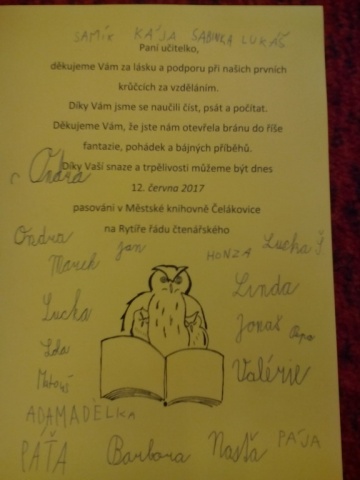 SAMÍK KÁJA SABINKA LUKÁŠ
Paní učitelko,
děkujeme Vám za lásku a podporu při našich prvních
krůčcích za vzděláním.
Díky Vám jsme se naučili číst, psát a počítat.
Děkujeme Vám, že jste nám otevřela bránu do říše
fantazie, pohádek a bájných příběhů.
Ondra
Díky Vaší snaze a trpělivosti můžeme být dnes
12. června 2017
pasováni v Městské knihovně Čelákovice
na Rytíře řádu čtenářského
Ondra Jan HONZA Lucka Š.
Marek
Linda
Lucka
Jonáš
Lola
Valérie
Matouš
ADAM ADÉLKA
PÁŤA Barbora Nasťa PÁJA